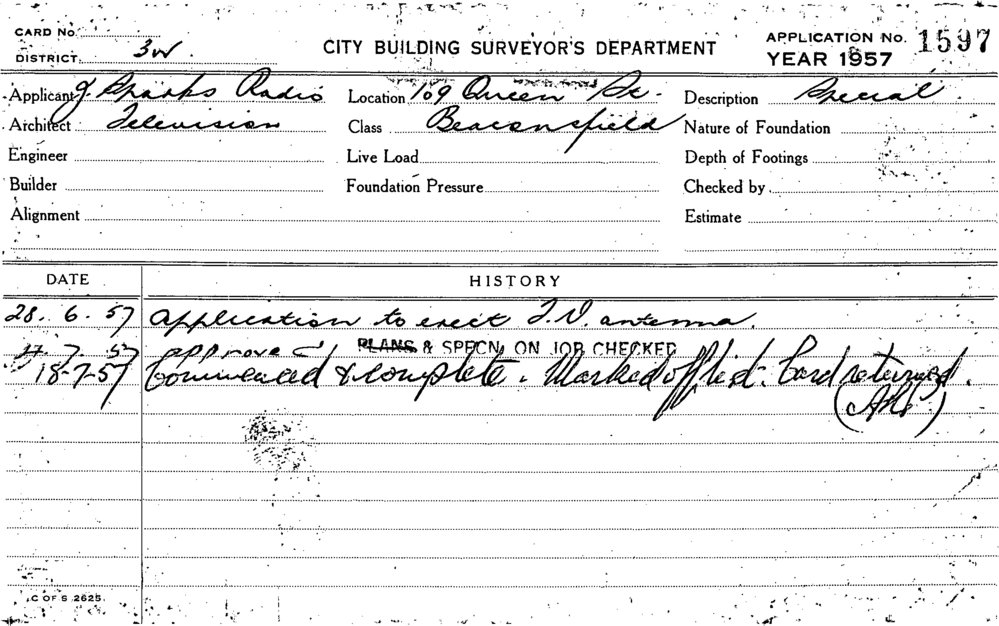 CARD No.
DISTRICT. 3W.
CITY BUILDING SURVEYOR'S DEPARTMENT
APPLICATION No. 1597
YEAR 1957
Applicant J. Sparks Radio
Location 109 Queen St.
Description Special
Architect Television
Class Beaconsfield
Nature of Foundation
Engineer
Live Load
Depth of Footings
Builder
Foundation Pressure
Checked by
Alignment
Estimate
DATE HISTORY
28. 6. 57 application to erect T.V. antenna.
4. 7. 57 approved PLANS & SPECN. ON JOB CHECKED
18-7-57 Commenced & complete. Marked off list. Card returned.
C OF S 2625